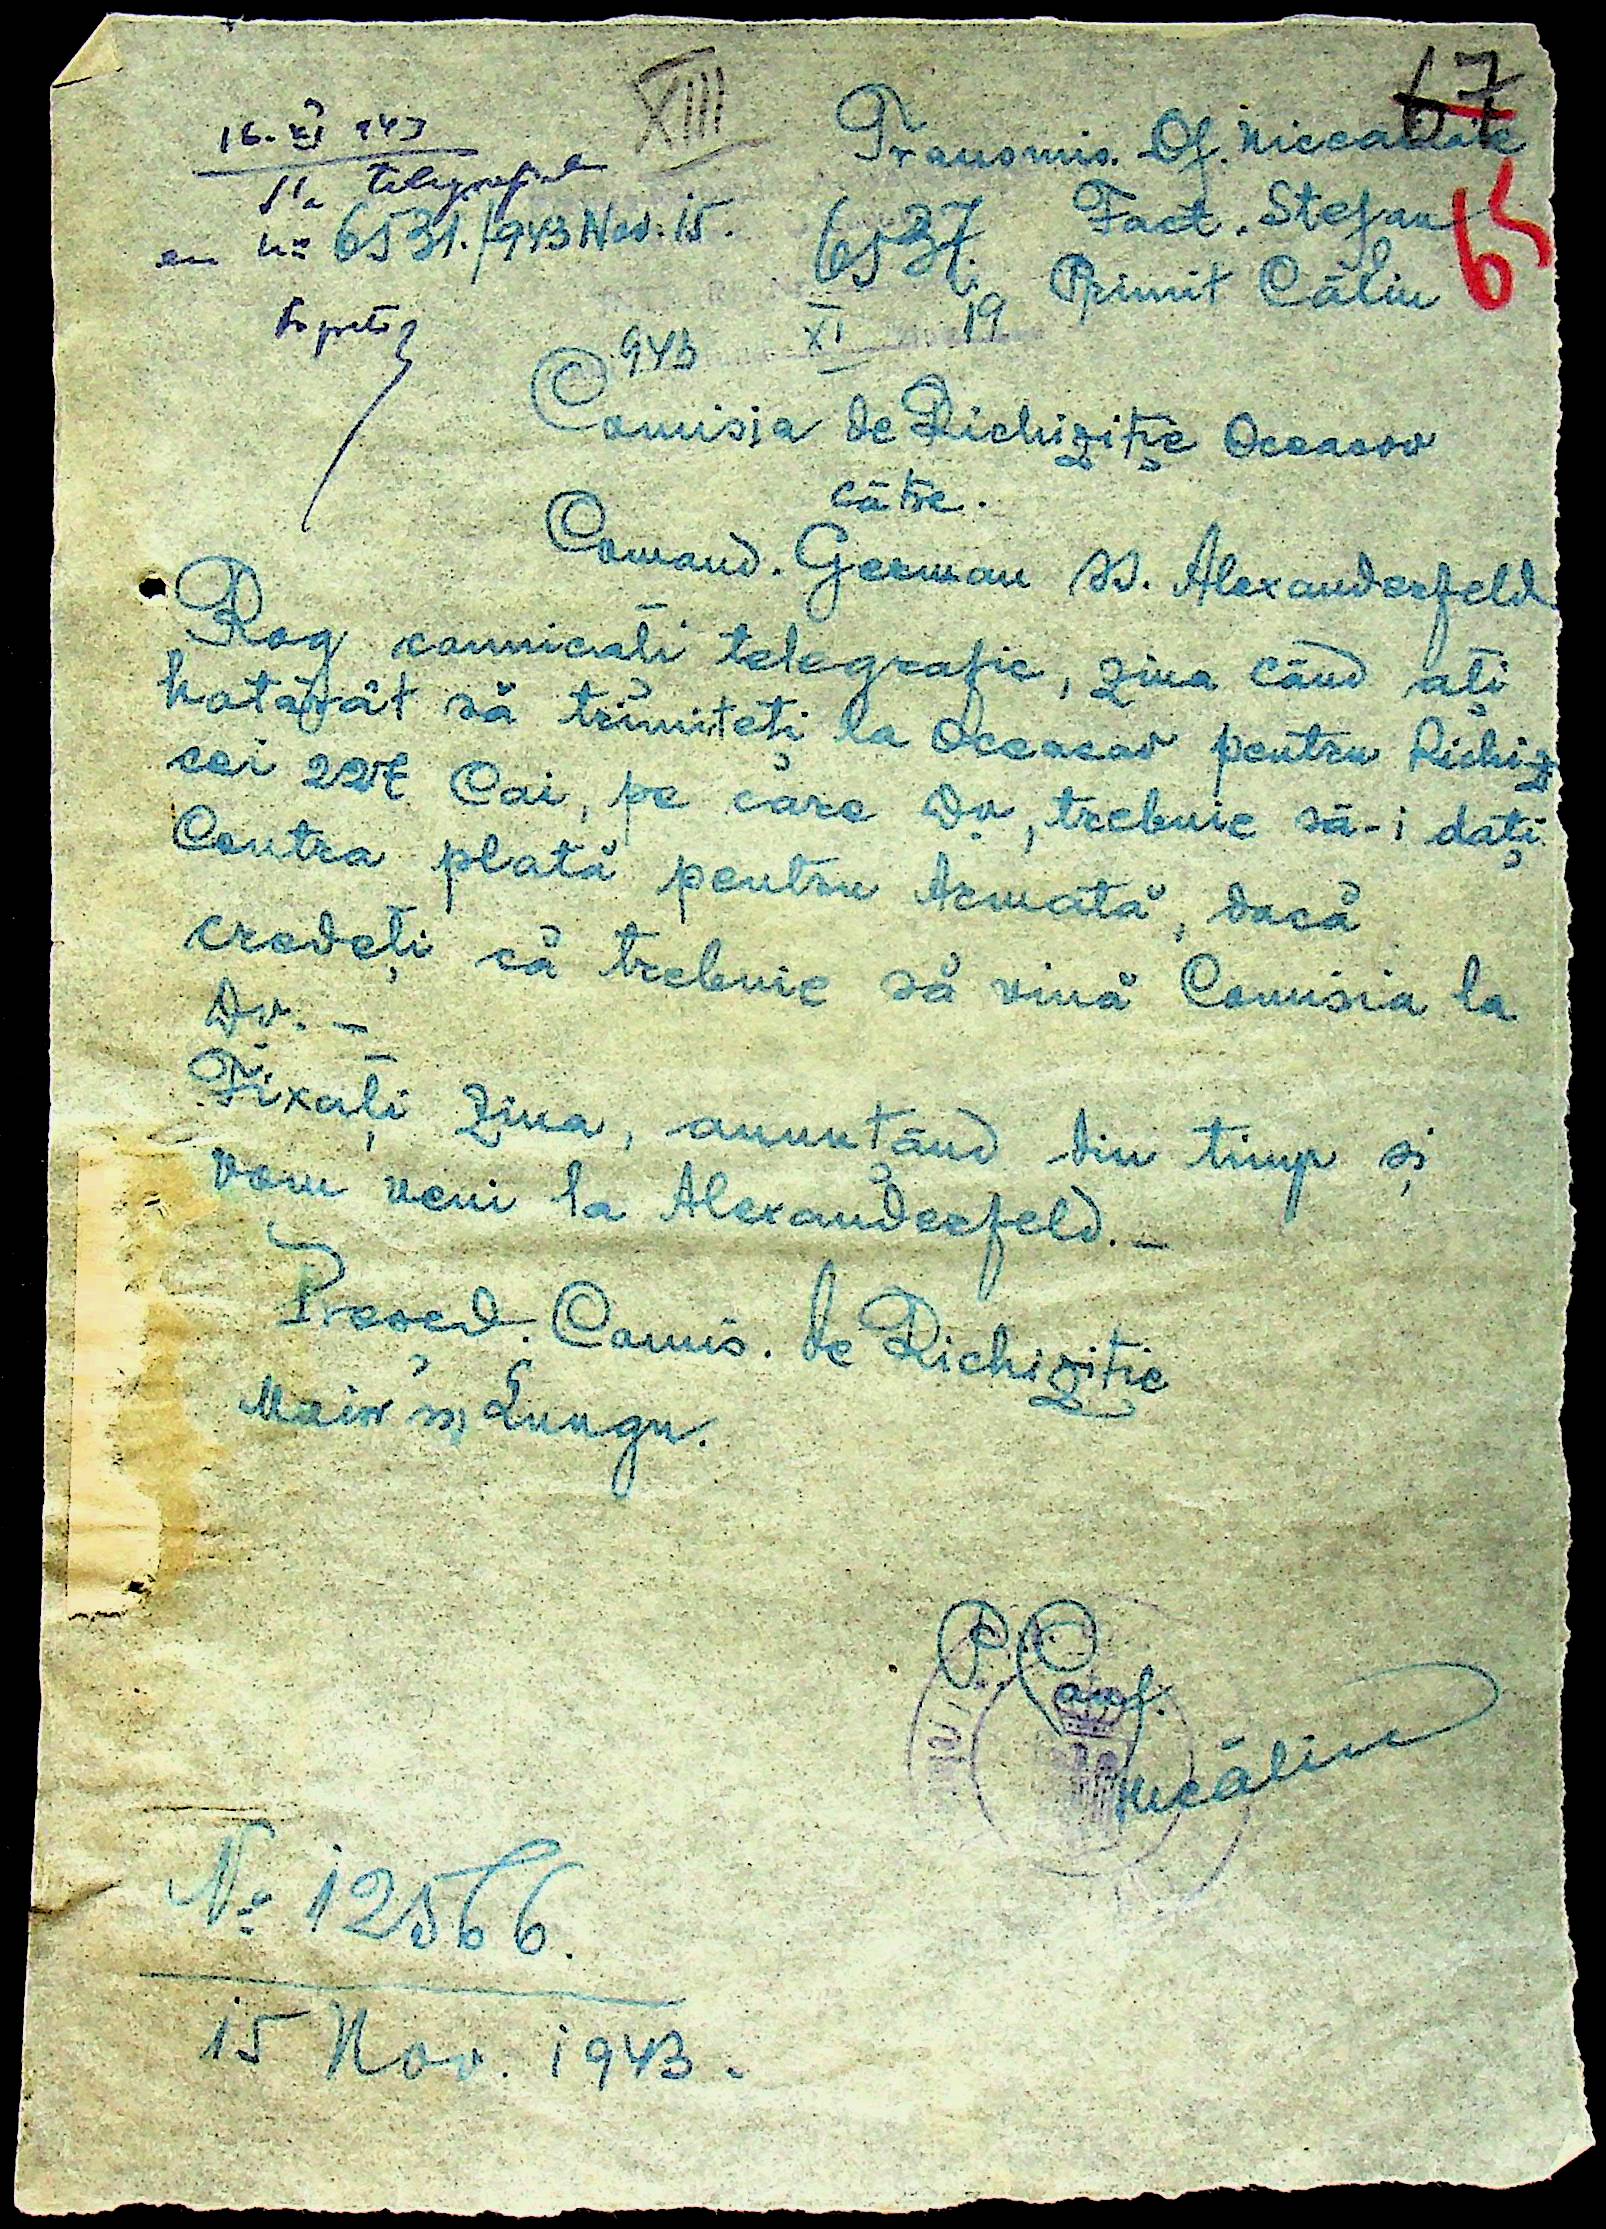 XIII
67
16. XI 943
telegrafic
cu No 6531./943 Nov. 15.
Transmis. Of.
Fact. Stefan
65
6537.
Primit Călin
943 XI 19
Comisia de Richiziție Oceacov
către.
Comand. German SS. Alexanderfeld
Rog comnicați telegrafic, ziua când ați
hotărât să trimiteți la Oceacov pentru Richiz
cei 227 Cai, pe care Dv, trebuie să-i dați
Contra plată pentru Armată, dacă
credeți că trebuie să vină Comisia la
Dv. –
Fixați ziua, anunțând din timp și
vom veni la Alexanderfeld. –
Președ. Comis. de Richiziție
Maior ss, Lungu.
P. Conf.
No 12566.
15 Nov. 1943.